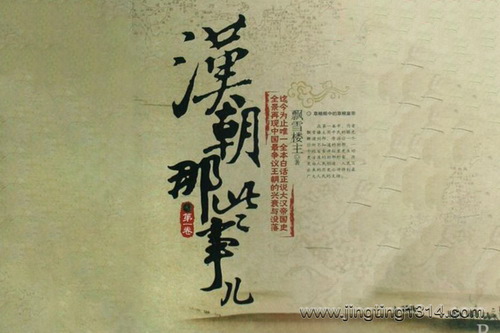 漢朝那些事儿
第一卷
迄今为止唯一全本白话正说大汉帝国史
全景再现中国最争议王朝的兴衰与没落
飘雪楼主 著
www.jingting1314.com